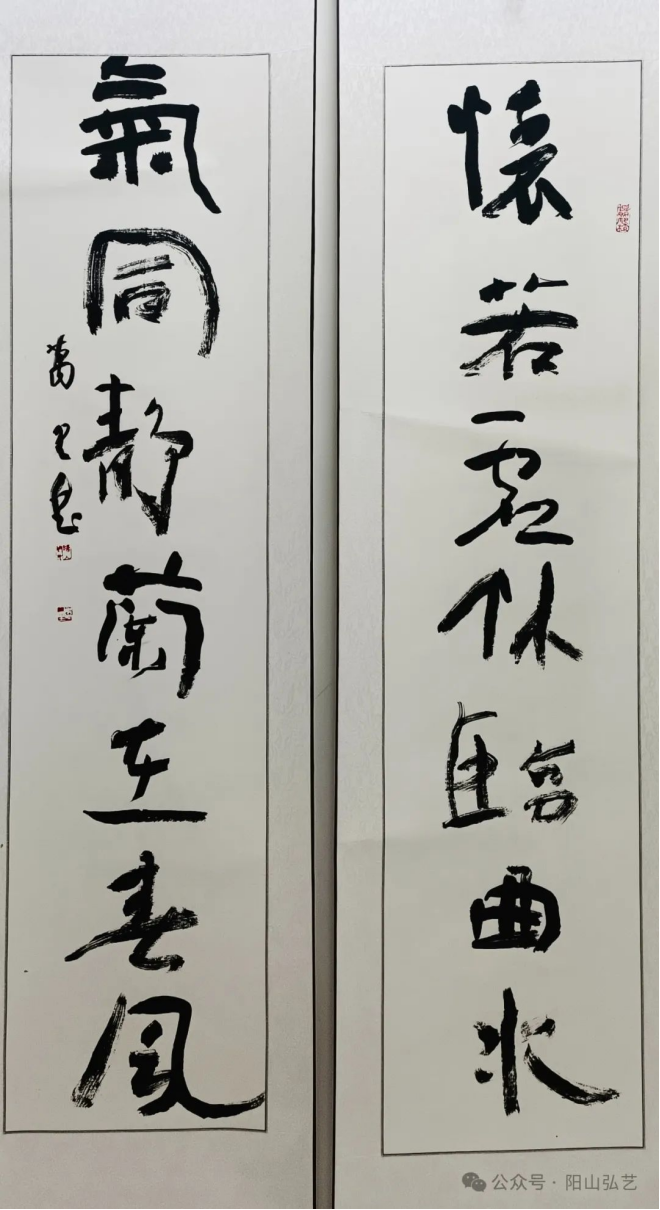 懷若虛竹臨曲水
氣同靜蘭在春風
公众号·阳山弘艺